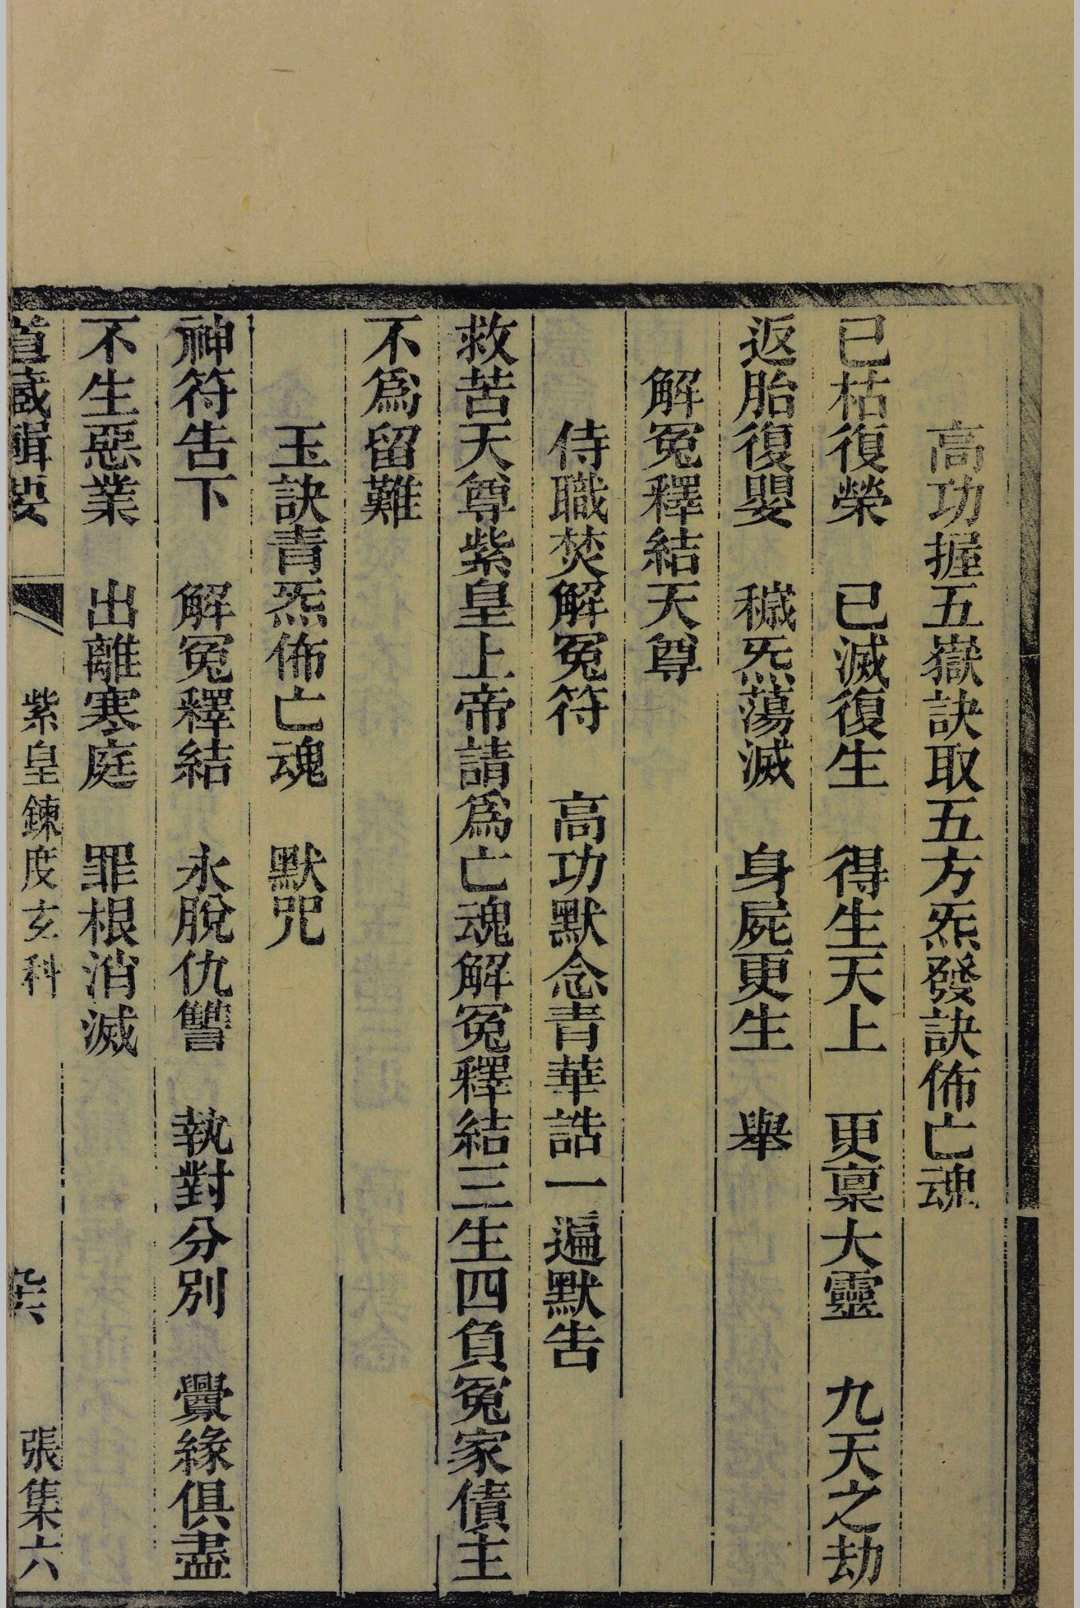 高功握五嶽訣取五方炁發訣佈亡魂
已枯復榮　已滅復生　得生天上　更稟大靈　九天之劫
返胎復嬰　穢炁蕩滅　身屍更生　舉
解冤釋結天尊
侍職焚解冤符　高功默念青華誥一遍默告
救苦天尊紫皇上帝請爲亡魂解冤釋結三生四負冤家債主
不爲留難
玉訣青炁佈亡魂　默咒
神符告下　解冤釋結　永脫仇讐　執對分別　釁緣俱盡
不生惡業　出離寒庭　罪根消滅
道藏輯要　紫皇鍊度玄科　張集六